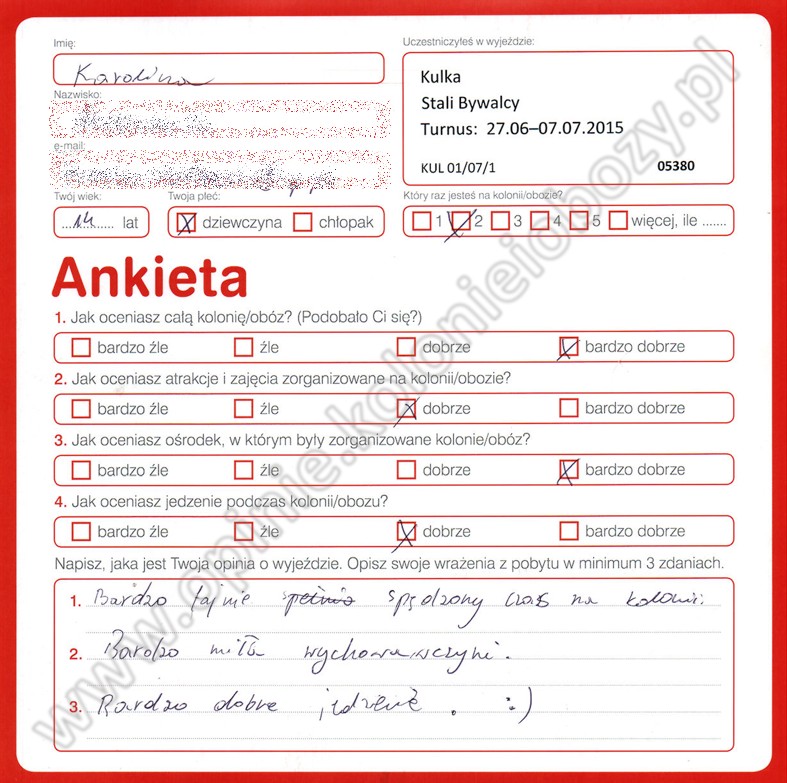 Imię:
Karolina
Nazwisko:
e-mail:
Twój wiek:
14 lat
Twoja płeć:
dziewczyna chłopak
Uczestniczyłeś w wyjeździe:
Kulka
Stali Bywalcy
Turnus: 27.06–07.07.2015
KUL 01/07/1 05380
Który raz jesteś na kolonii/obozie?
1 2 3 4 5 więcej, ile .......
Ankieta
1. Jak oceniasz całą kolonię/obóz? (Podobało Ci się?)
bardzo źle źle dobrze bardzo dobrze
2. Jak oceniasz atrakcje i zajęcia zorganizowane na kolonii/obozie?
bardzo źle źle dobrze bardzo dobrze
3. Jak oceniasz ośrodek, w którym były zorganizowane kolonie/obóz?
bardzo źle źle dobrze bardzo dobrze
4. Jak oceniasz jedzenie podczas kolonii/obozu?
bardzo źle źle dobrze bardzo dobrze
Napisz, jaka jest Twoja opinia o wyjeździe. Opisz swoje wrażenia z pobytu w minimum 3 zdaniach.
1. Bardzo fajnie spędzony czas na kolonii.
2. Bardzo miła wychowawczyni.
3. Bardzo dobre jedzenie. :)
www.opinie.kolonieiobozy.pl